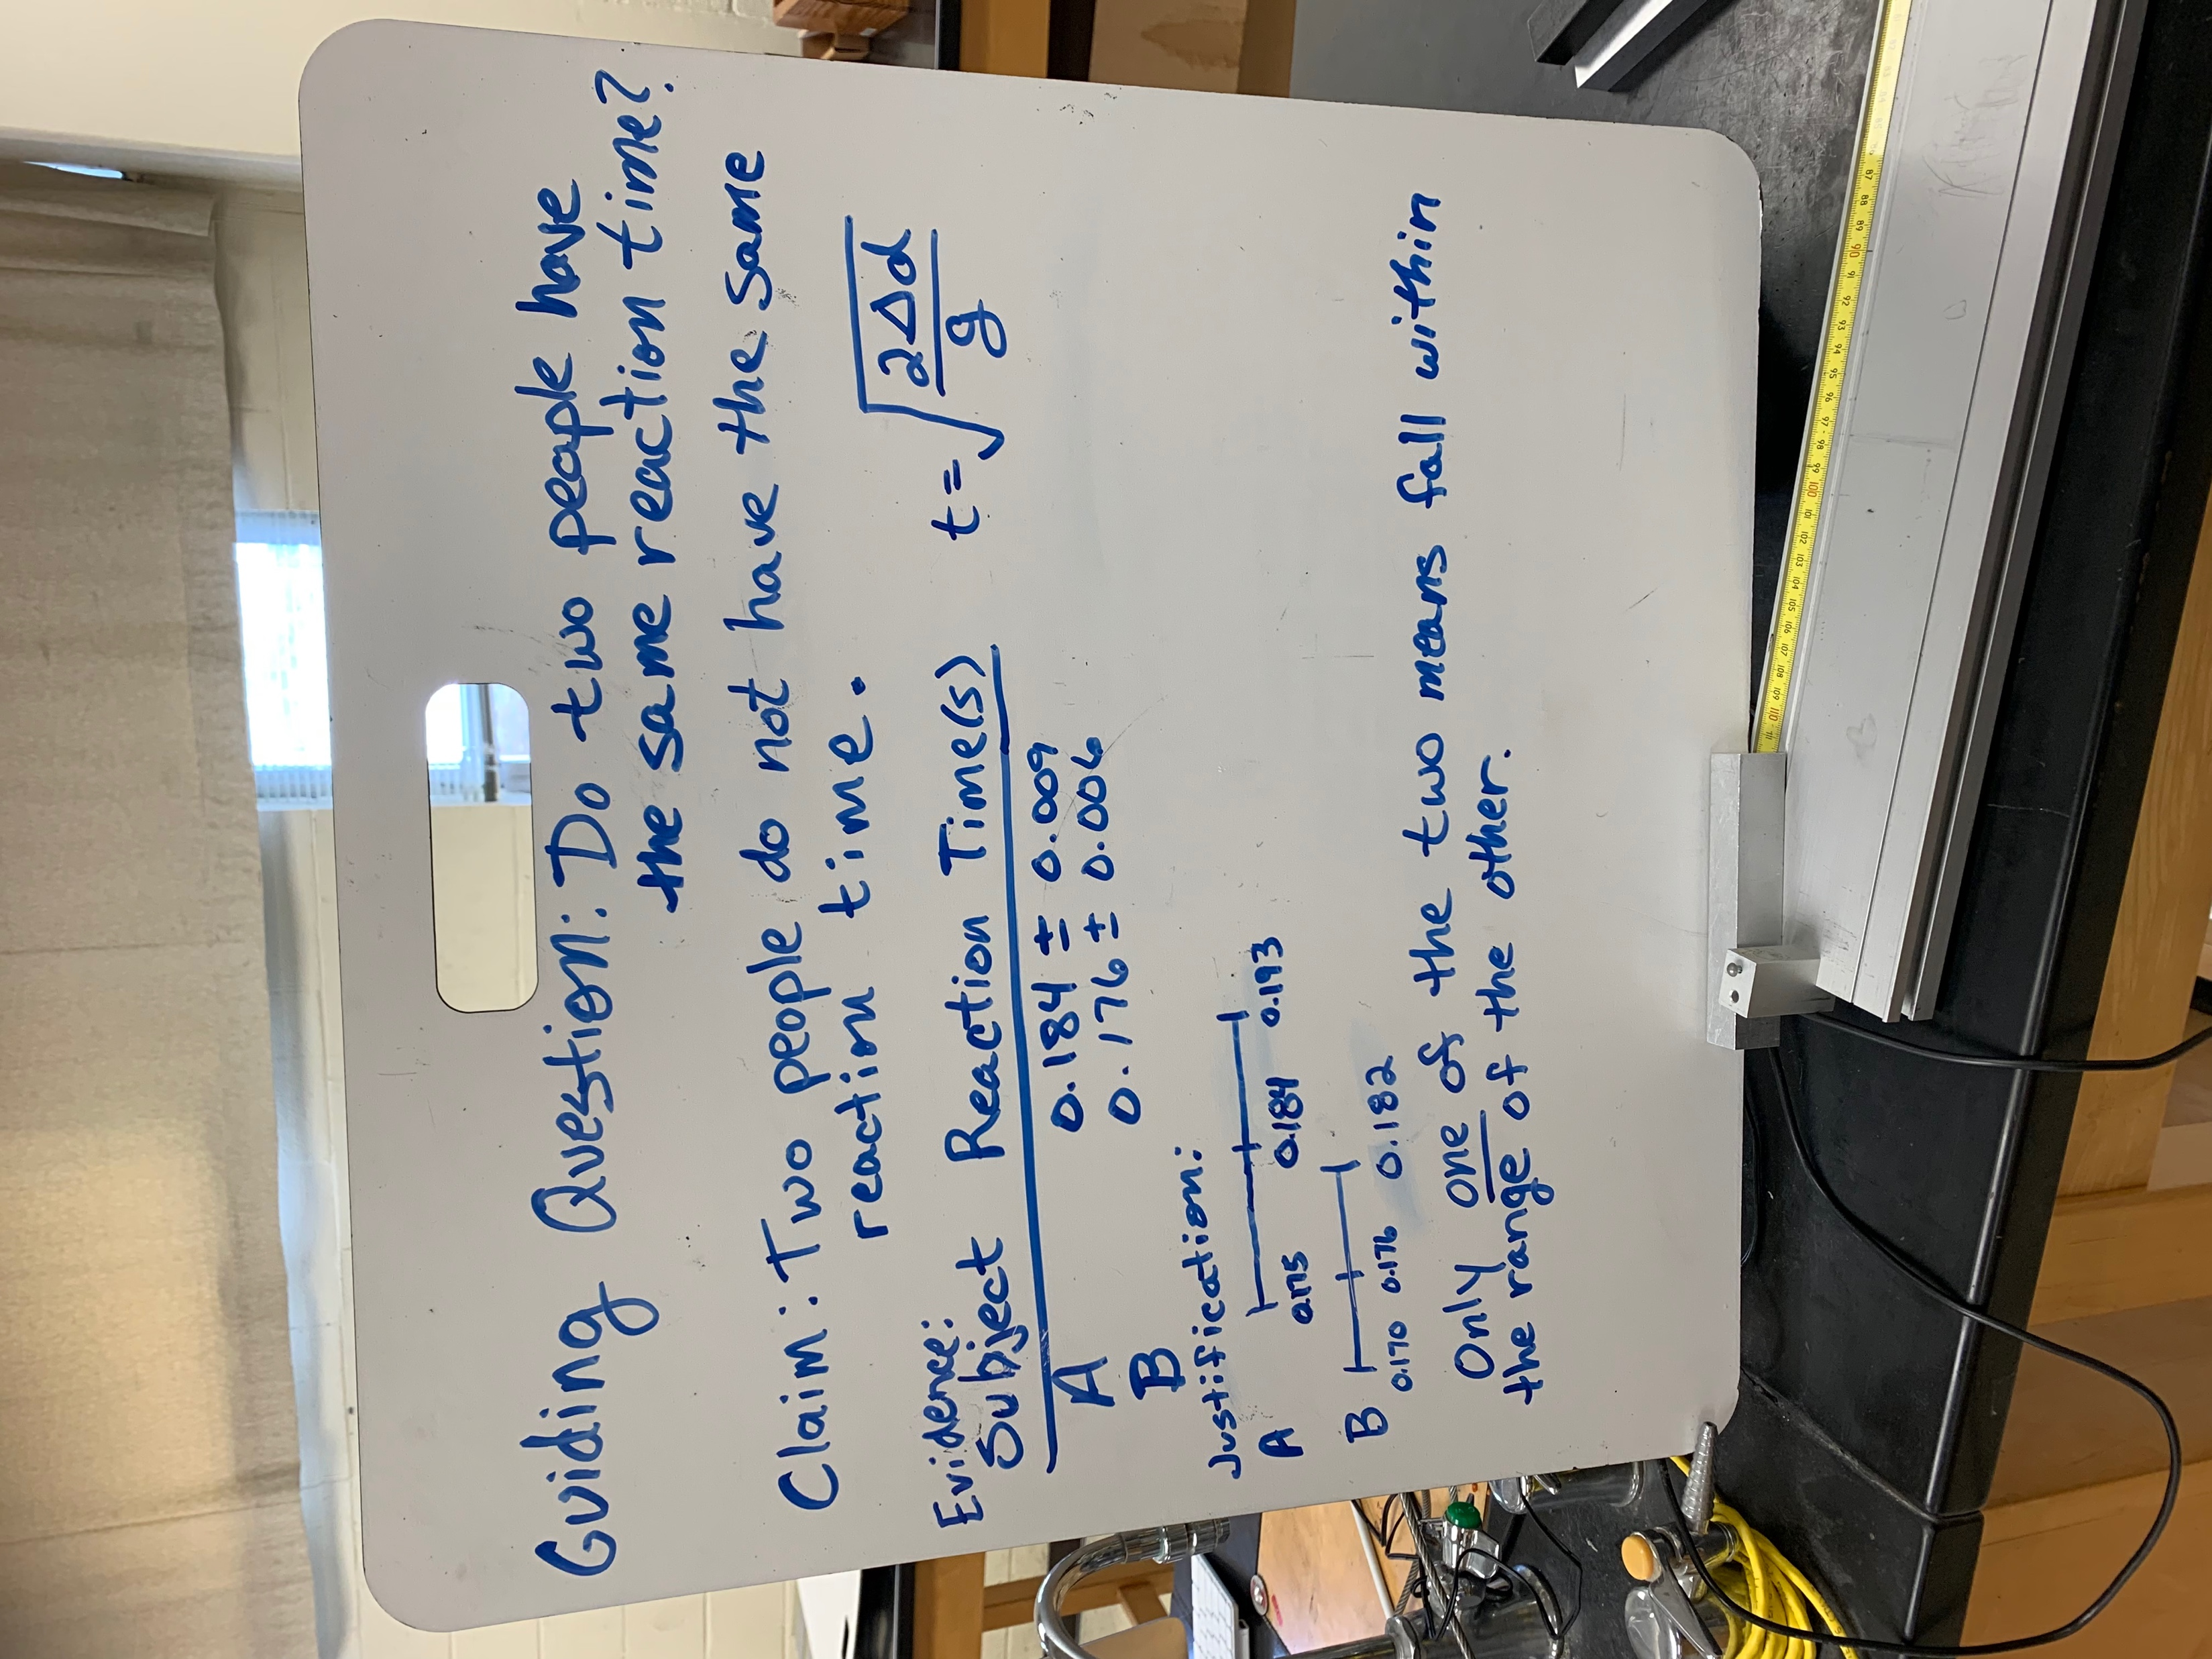 Guiding Question: Do two people have
the same reaction time?
Claim: Two people do not have the same
reaction time.
Evidence:
Subject Reaction Time(s)
A 0.184 ± 0.009
B 0.176 ± 0.006
t = √(2Δd/g)
Justification:
A
0.175 0.184 0.193
B
0.170 0.176 0.182
Only one of the two means fall within
the range of the other.
87 88 89 90 91 92 93 94 95 96 97 98 99 100 101 102 103 104 105 106 107 108 109 110 111